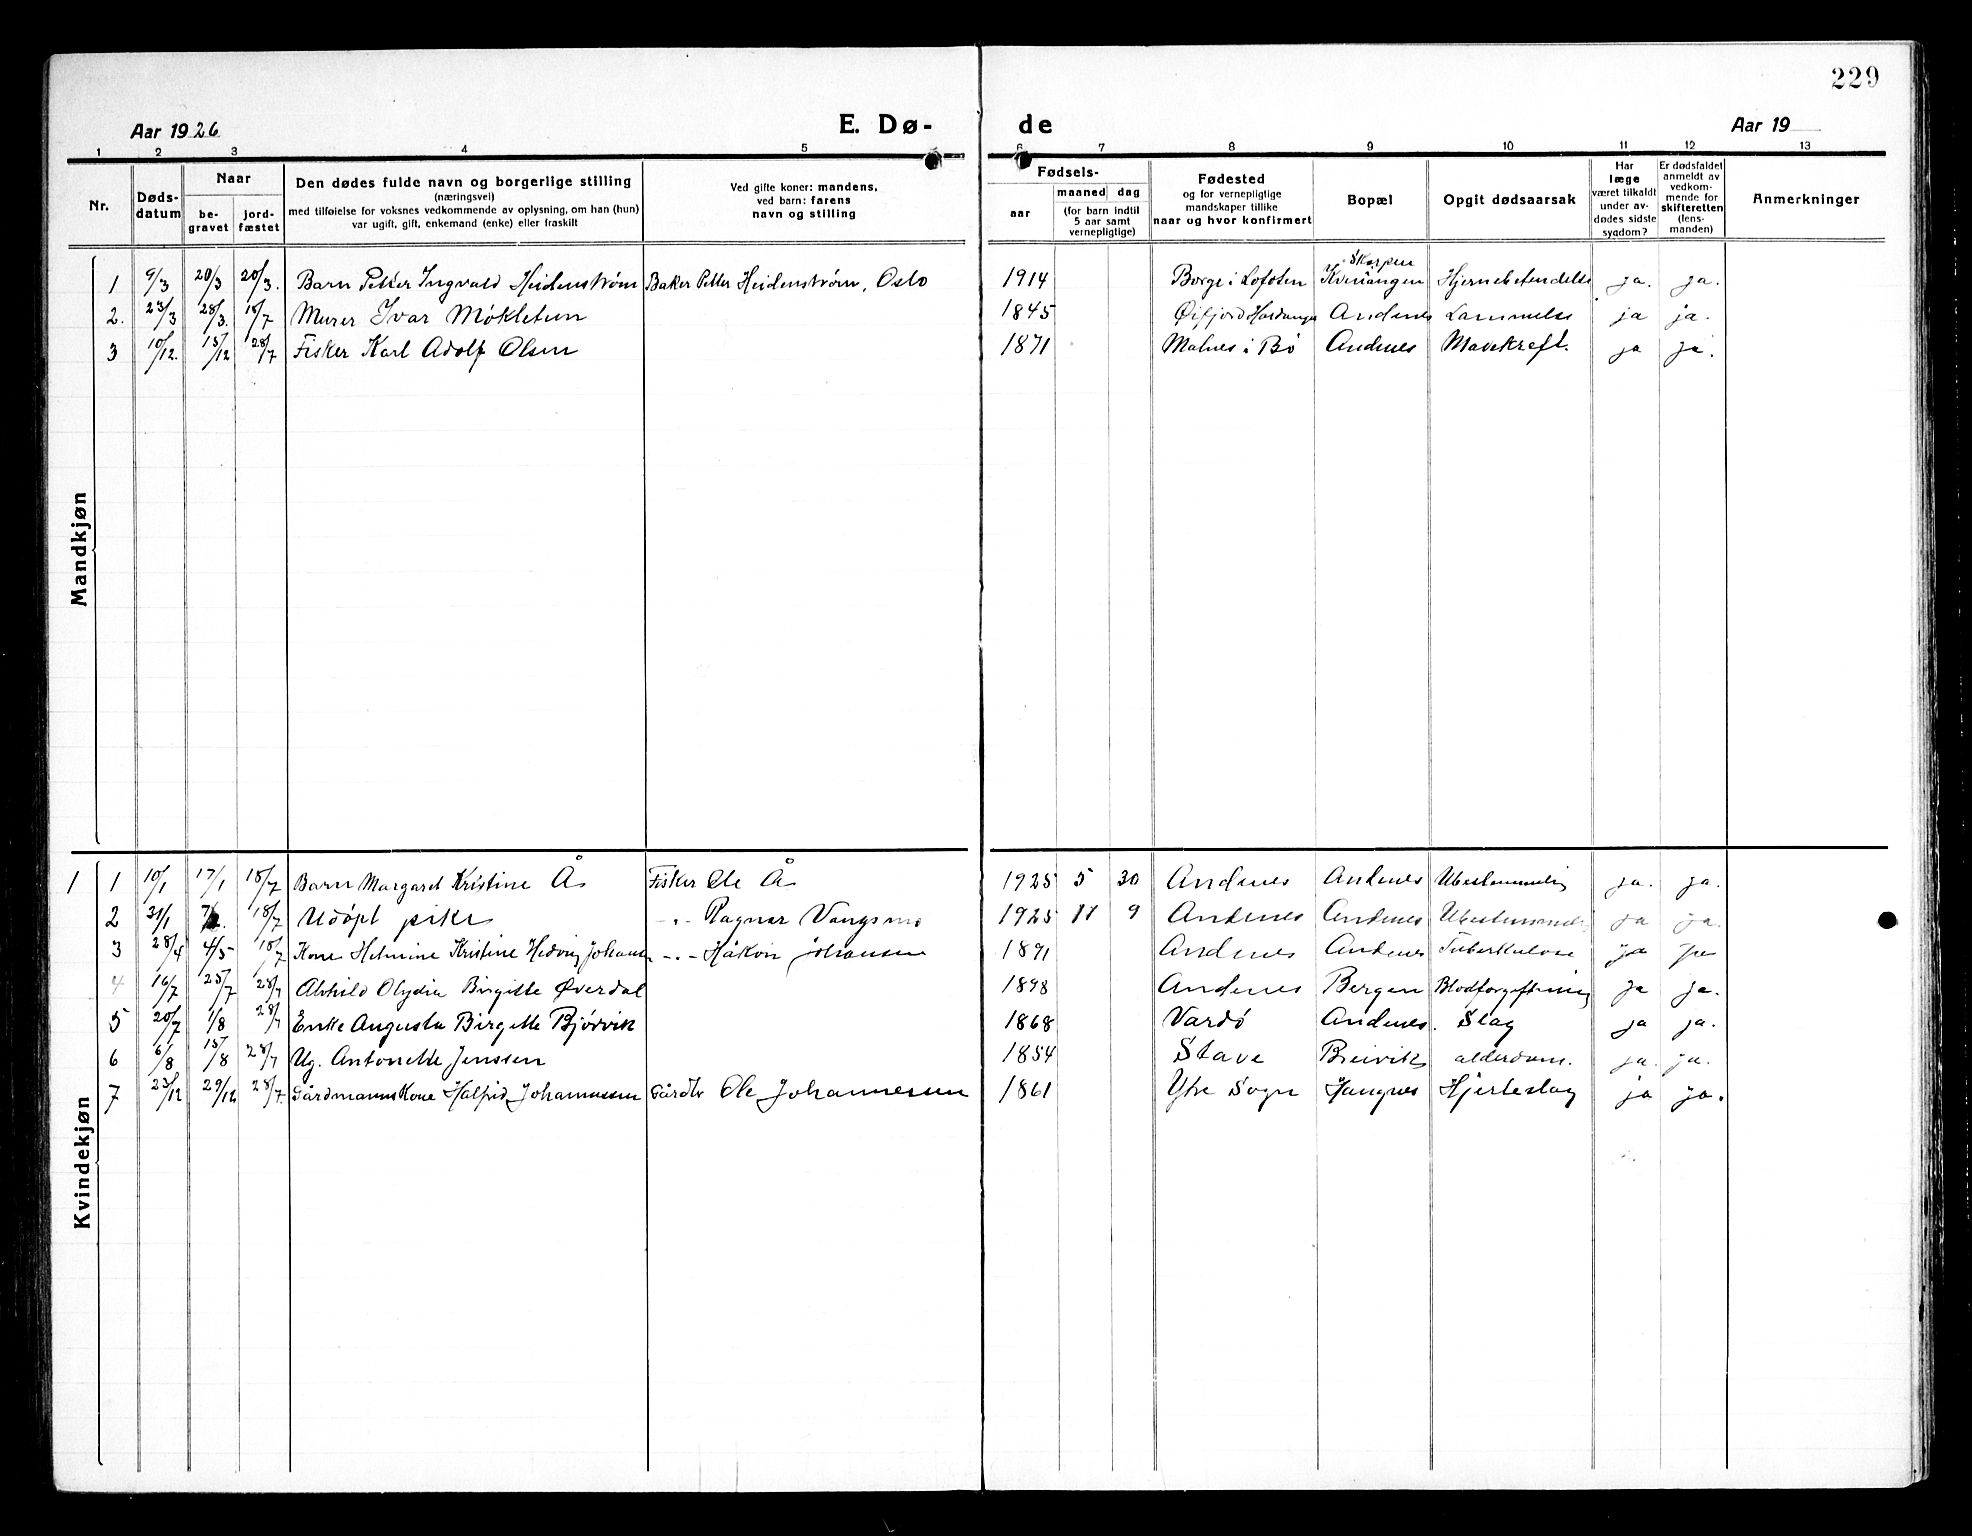 229
Aar 1926 E. Dø- de Aar 19
1 2 3 4 5 6 7 8 9 10 11 12 13
Nr. Døds-datum Naar be-gravet jord-fæstet Den dødes fulde navn og borgerlige stilling (næringsvei) med tilføielse for voksnes vedkommende av oplysning, om han (hun) var ugift, gift, enkemand (enke) eller fraskilt Ved gifte koner: mandens, ved barn: farens navn og stilling Fødsels- aar maaned dag (for barn indtil 5 aar samt vernepligtige) Fødested og for vernepligtige mandskaper tillike naar og hvor konfirmert Bopæl Opgit dødsaarsak Har læge været tilkaldt under av-dødes sidste sygdom? Er dødsfaldet anmeldt av vedkom-mende for skifteretten (lens-manden) Anmerkninger
Mandkjøn
1 9/3 20/3 20/3. Barn Petter Ingvald Heidenstrøm Baker Petter Heidenstrøm, Oslo 1914 Borge i Lofoten Skorpen Kvenangen Hjernebetendelse ja. ja.
2. 23/3 28/3. 18/7 Murer Ivar Møkletun 1845 Øifjord Hardanger Andenes Lammelse ja ja.
3 10/12. 15/12 28/7 Fisker Karl Adolf Olsen 1871 Malnes i Bø Andenes Mavekreft. ja ja.
Kvindekjøn
1 1 10/1 17/1 18/7 Barn Margaret Kristine Å Fisker Ole Å 1925 5 30 Andenes Andenes Ubestemmelig ja. ja.
2 31/1 18/7 Udøpt pike -"- Ragnar Vangsmo 1925 11 9 Andenes Andenes Ubestemmelig ja ja.
3 28/4 4/5 18/7 Kone Helmine Kristine Hedvig Johansen -"- Håkon Johansen 1891 Andenes Andenes Tuberkulose ja ja
4 16/7 25/7 28/7 Alvhild Olydia Birgitte Øverdal 1898 Andenes Bergen Blodforgiftning ja ja.
5 20/7 1/8 28/7 Enke Augusta Birgitte Bjørvik 1868 Vardö Andenes. Slag ja ja.
6 6/8 15/8 28/7 Ug. Antonette Jenssen 1854 Stave Breivik alderdom. ja. ja.
7 23/12 29/12 28/7. Gårdmanns Kone Halfrid Johannessen Gårdbr Ole Johannessen 1861 Ytre Sogn Haugnes Hjerteslag ja ja.